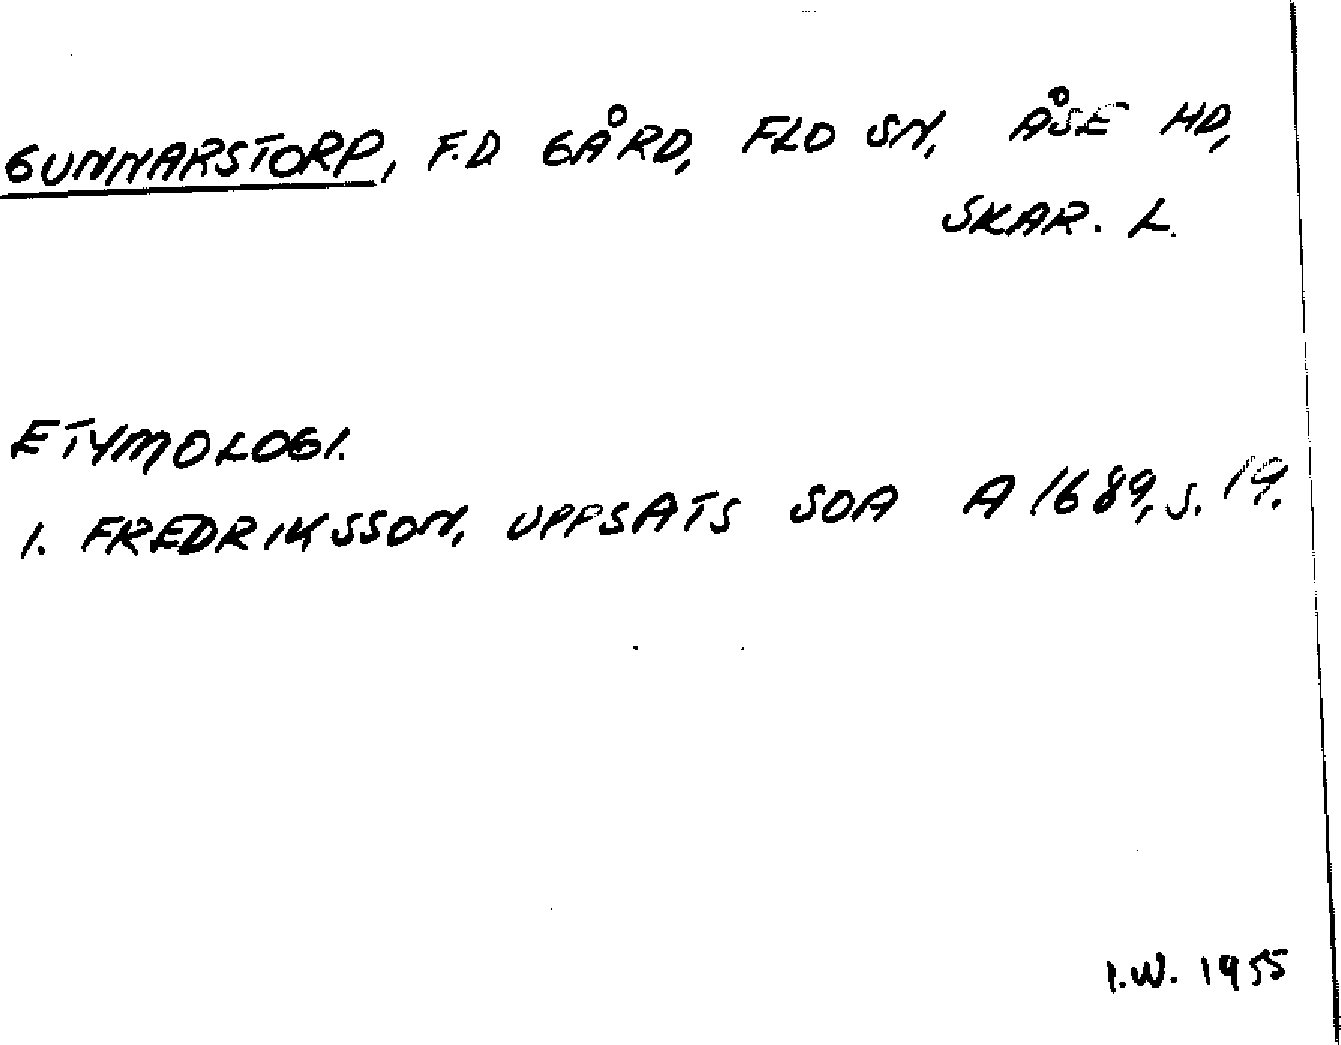 GUNNARSTORP, F.D GÅRD, FLO SN, ÅSE HD,
SKAR. L.
ETYMOLOGI.
1. FREDRIKSSON, UPPSATS SOA A 1689, S. 19.
I.W. 1955